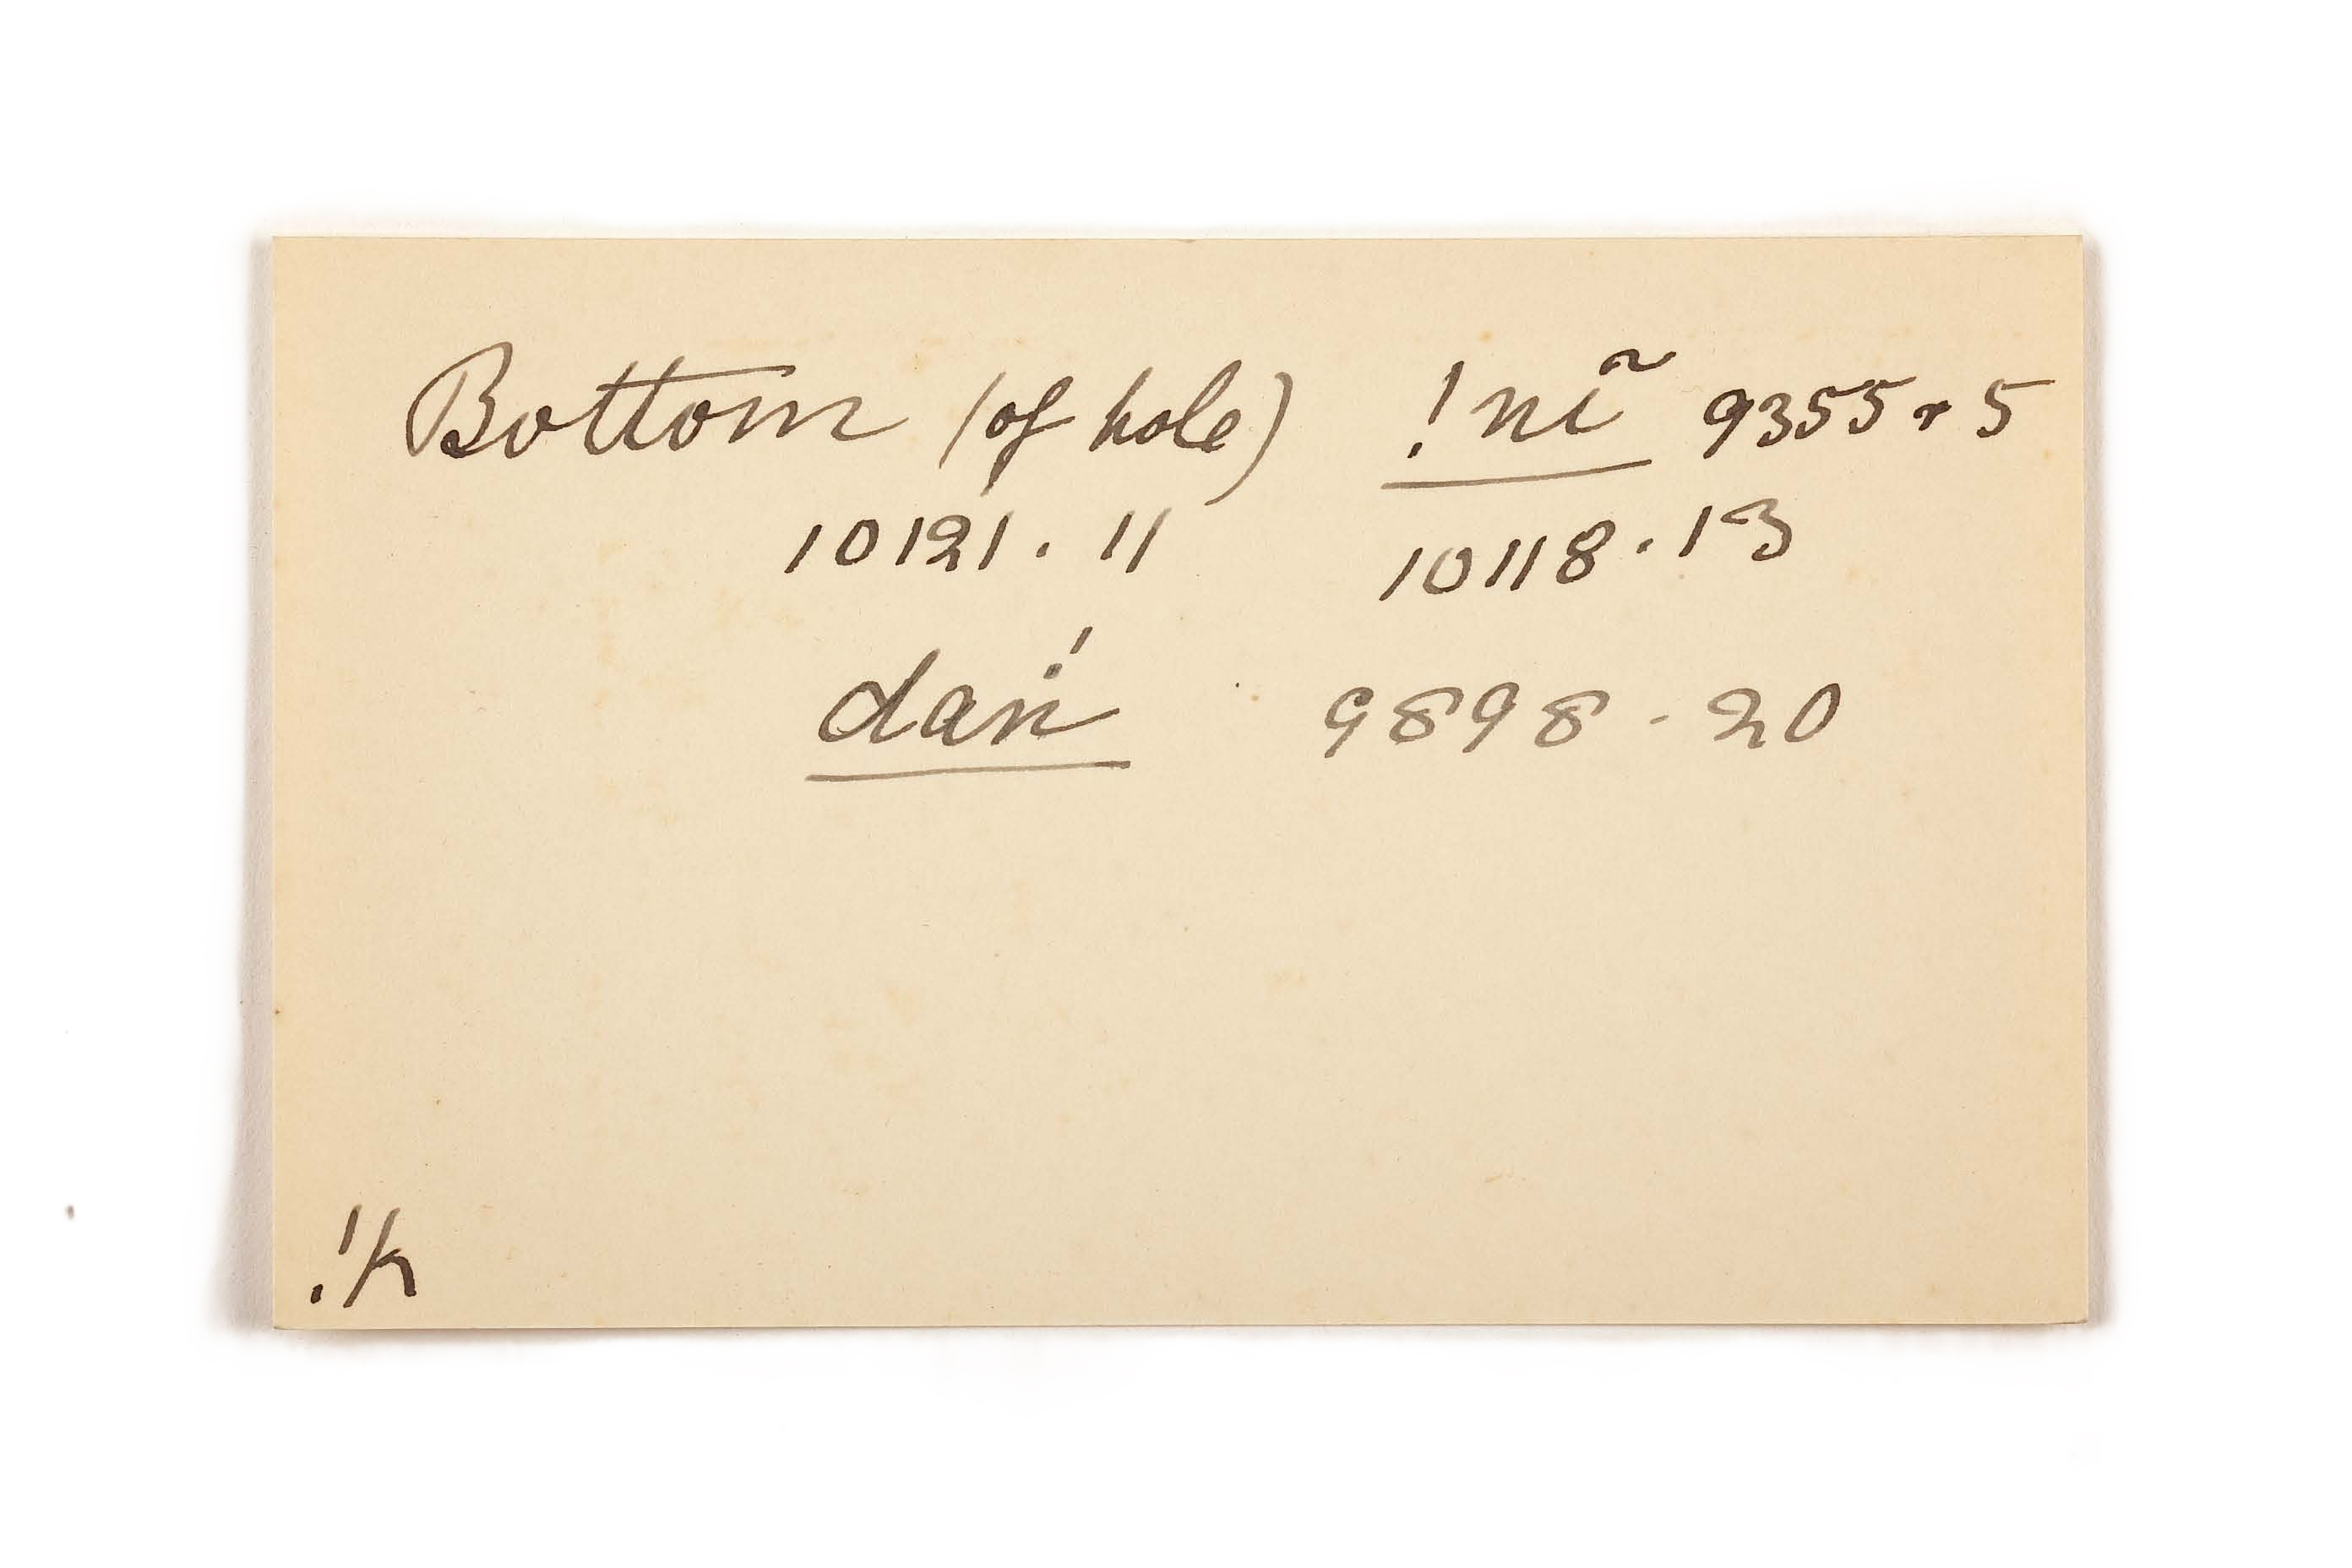 Bottom (of hole) !nĩ 9355 r 5
10121. 11 10118. 13
daṅ! 9898 - 20
!k